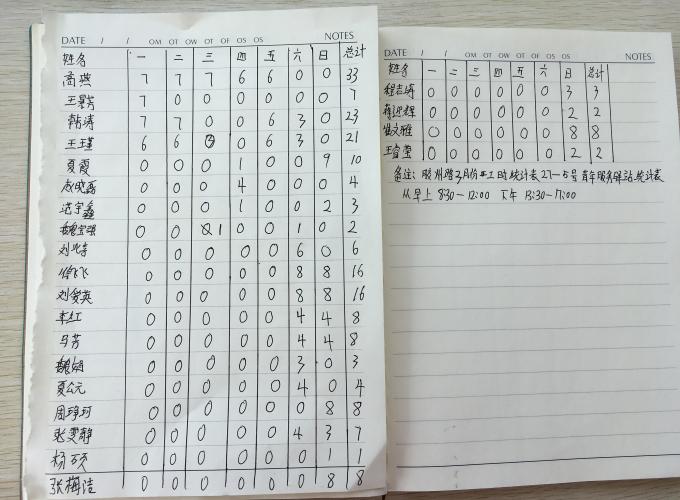 DATE / / OM OT OW OT OF OS OS NOTES
姓名 一 二 三 四 五 六 日 总计
高燕 7 7 7 6 6 0 0 33
王景芳 7 0 0 0 0 0 0 7
韩涛 7 7 0 0 6 3 0 23
王瑾 6 6 0 0 6 3 0 21
夏霞 0 0 0 1 0 0 9 10
0 0 0 4 0 0 0 4
0 0 0 1 0 0 2 3
魏宝明 0 0 1 0 0 1 0 2
刘兆幸 0 0 0 0 0 6 0 6
徐飞飞 0 0 0 0 0 8 8 16
刘爱英 0 0 0 0 0 8 8 16
李红 0 0 0 0 0 4 4 8
马芳 0 0 0 0 0 4 4 8
魏娟 0 0 0 0 0 3 0 3
夏公元 0 0 0 0 0 4 0 4
周琦珂 0 0 0 0 0 0 8 8
张雯静 0 0 0 0 0 4 3 7
杨硕 0 0 0 0 0 0 1 1
张梅洁 0 0 0 0 0 0 8 8
DATE / / OM OT OW OT OF OS OS NOTES
姓名 一 二 三 四 五 六 日 总计
程志涛 0 0 0 0 0 0 3 3
0 0 0 0 0 0 2 2
崔文雅 0 0 0 0 0 0 8 8
王睿莹 0 0 0 0 0 0 2 2
备注: 胶州路3月份义工时统计表27-5号青年服务驿站统计表
从早上 8:30-12:00 下午 13:30-17:00